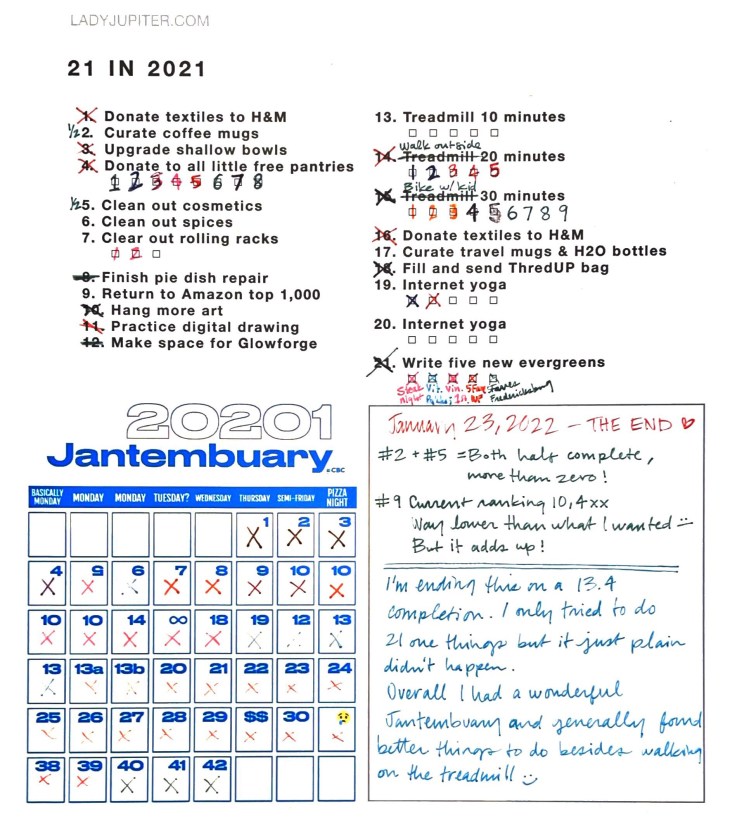 LADYJUPITER.COM
21 IN 2021
1. Donate textiles to H&M
1/2 2. Curate coffee mugs
3. Upgrade shallow bowls
4. Donate to all little free pantries
1 2 3 4 5 6 7 8
1/2 5. Clean out cosmetics
6. Clean out spices
7. Clear out rolling racks
1 2
8. Finish pie dish repair
9. Return to Amazon top 1,000
10. Hang more art
11. Practice digital drawing
12. Make space for Glowforge
13. Treadmill 10 minutes
Walk outside
14. Treadmill 20 minutes
1 2 3 4 5
Bike w/ kid
15. Treadmill 30 minutes
1 2 3 4 5 6 7 8 9
16. Donate textiles to H&M
17. Curate travel mugs & H2O bottles
18. Fill and send ThredUP bag
19. Internet yoga
20. Internet yoga
21. Write five new evergreens
Night Faves Fredericksburg
20201
Jantembuary
CBC
BASICALLY MONDAY MONDAY MONDAY TUESDAY? WEDNESDAY THURSDAY SEMI-FRIDAY PIZZA NIGHT
1 2 3
4 5 6 7 8 9 10 10
10 10 14 ∞ 18 19 12 13
13 13a 13b 20 21 22 23 24
25 26 27 28 29 $$ 30 😢
38 39 40 41 42
January 23, 2022 - THE END ♥
#2 + #5 = Both half complete,
more than zero!
#9 Current ranking 10,4xx
Way lower than what I wanted
But it adds up!
I'm ending this on a 13.4
completion. I only tried to do
21 one things but it just plain
didn't happen.
Overall I had a wonderful
Jantembuary and generally found
better things to do besides walking
on the treadmill